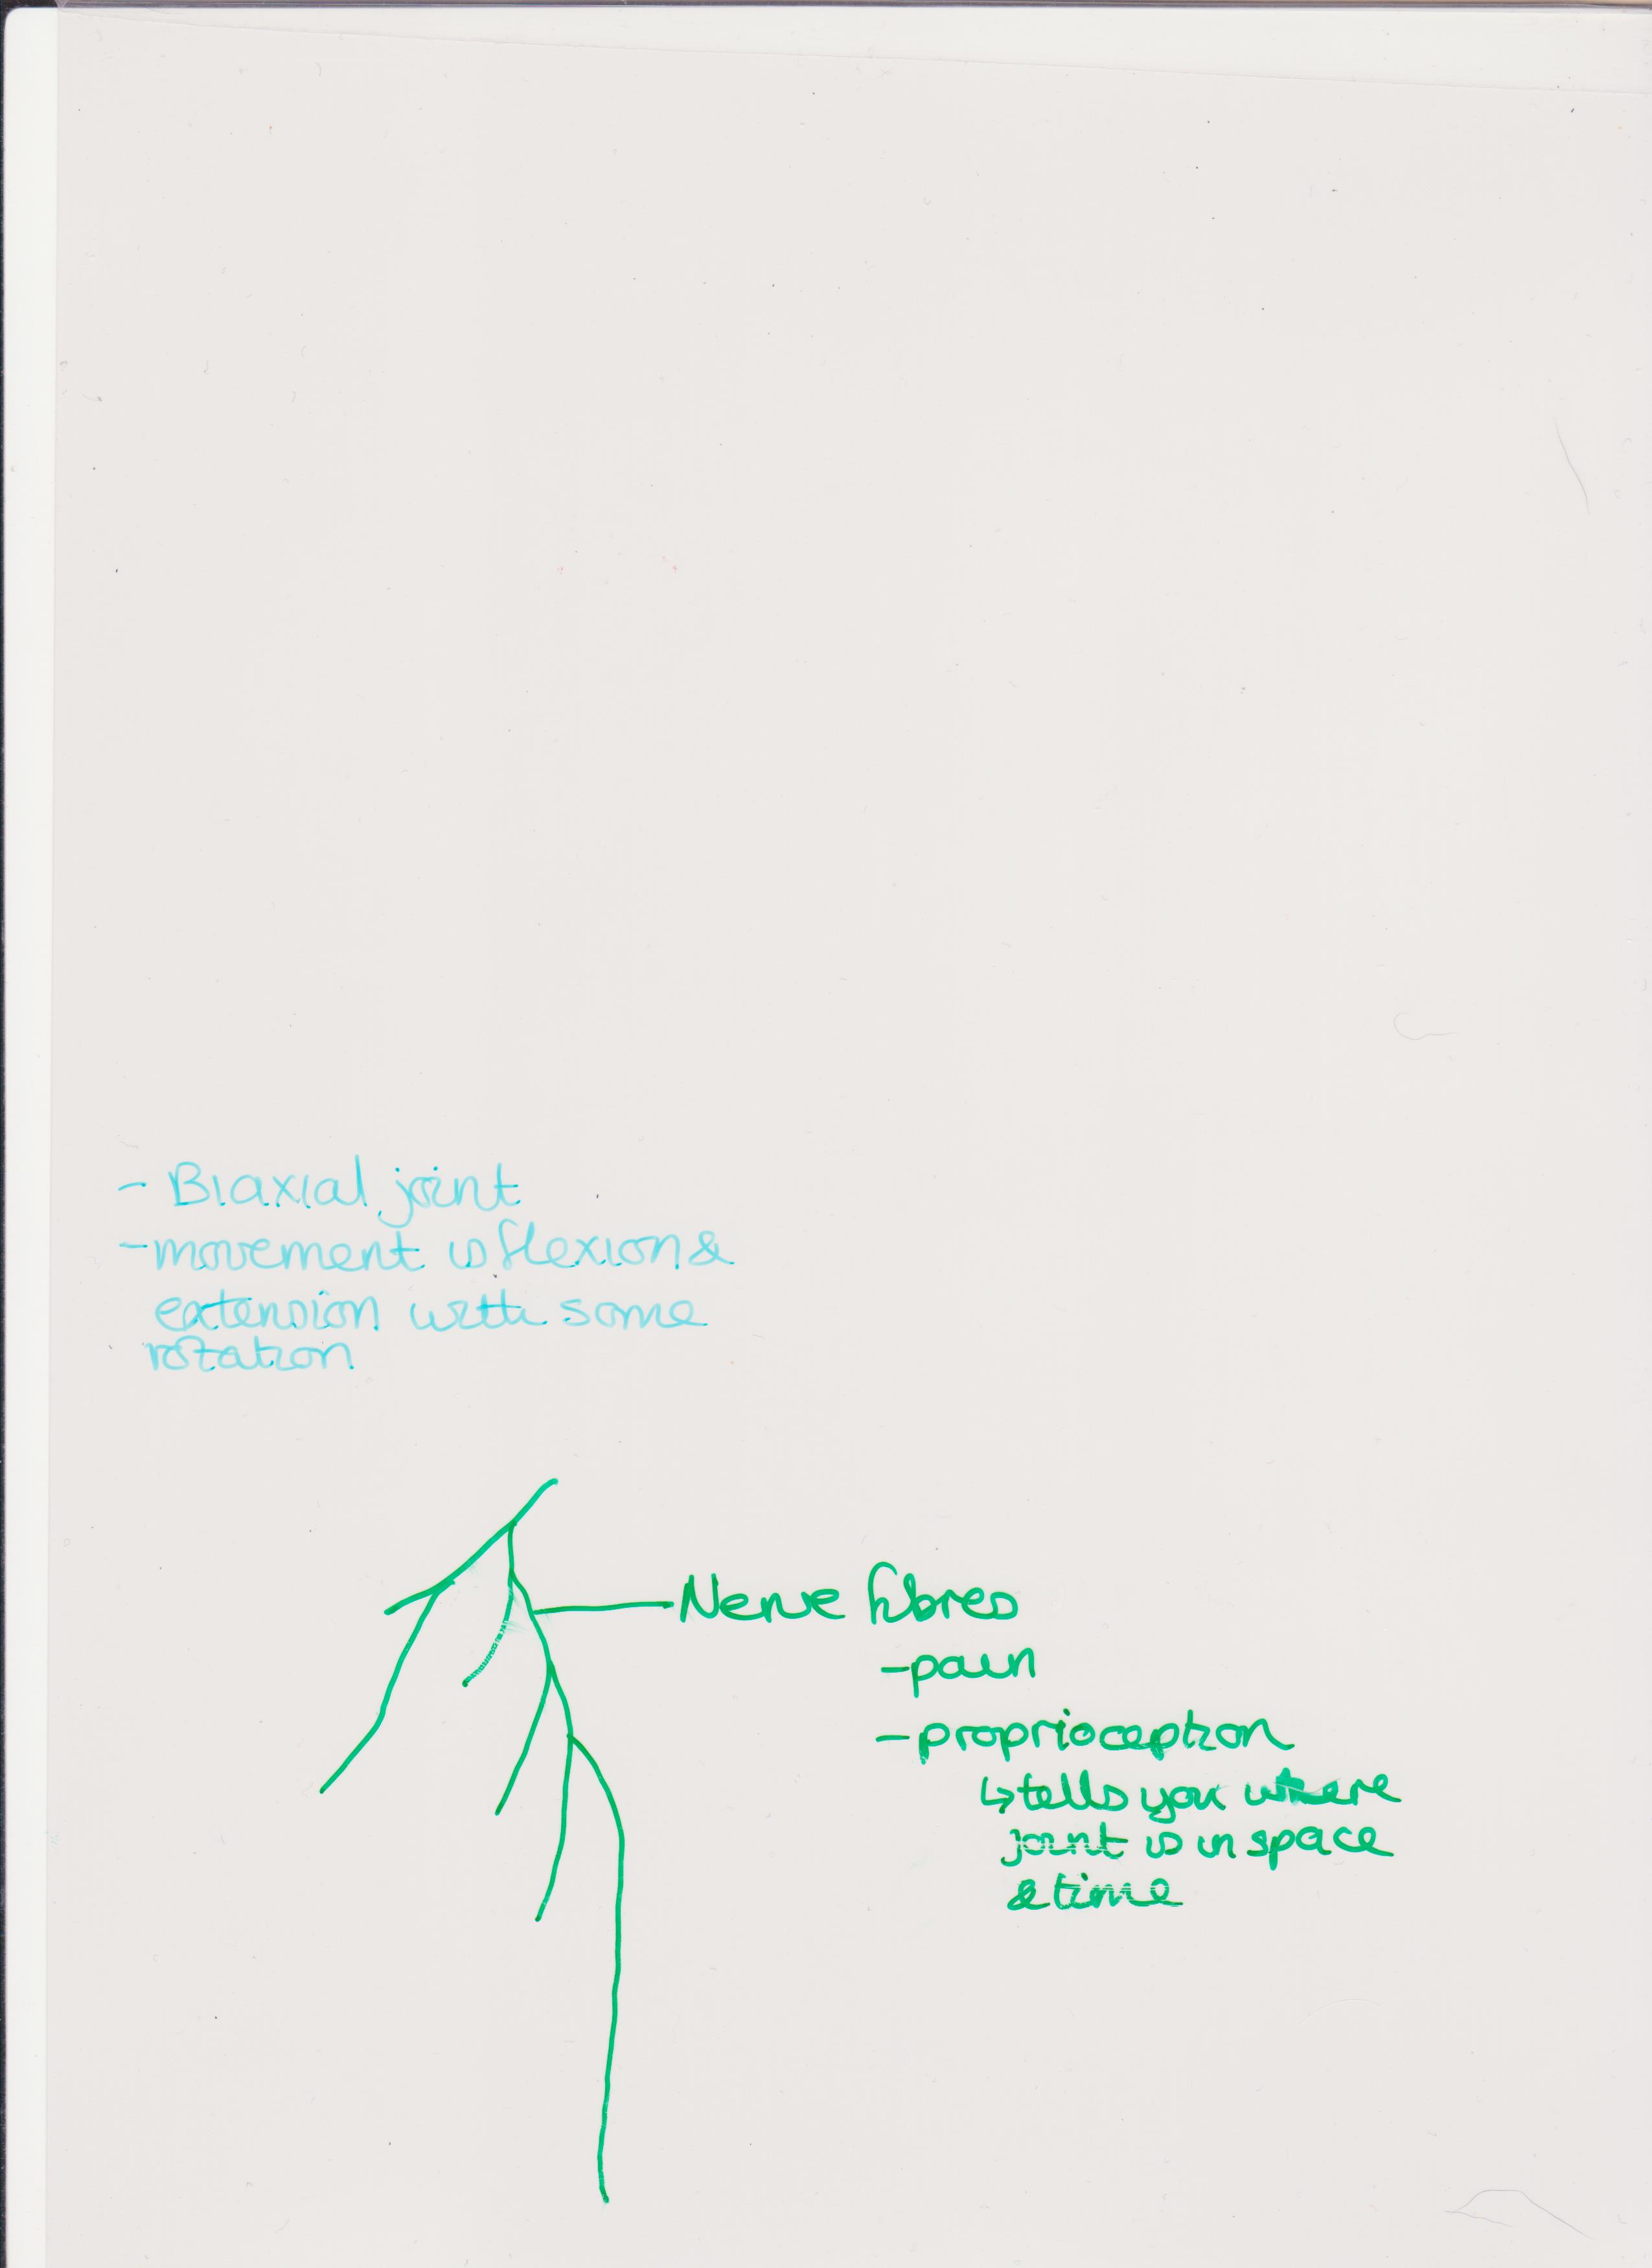 - Biaxial joint
- movement is flexion &
extension with some
rotation
Nerve fibres
- pain
- proprioception
↳ tells you where
joint is in space
& time